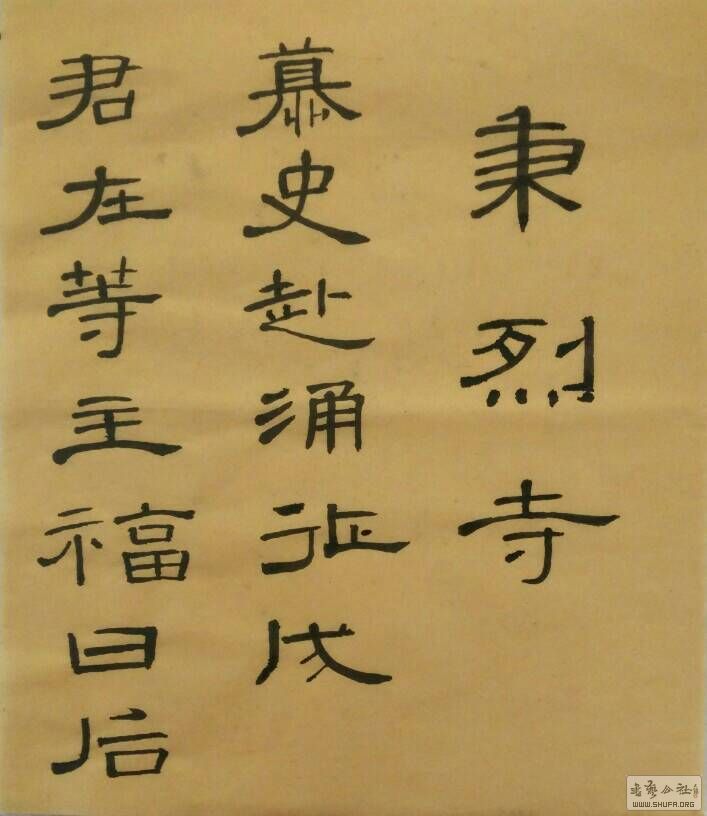 秉烈寺
慕史赴涌征
君在等主福曰后
书艺公社
WWW.SHUFA.ORG